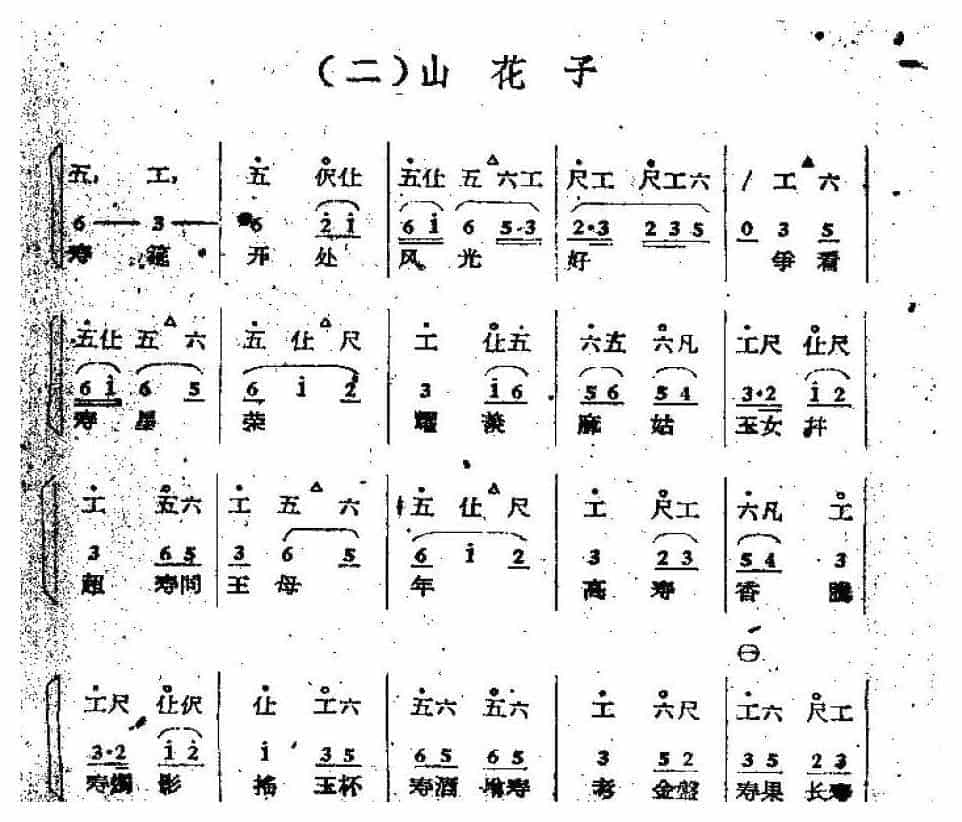 （二）山 花 子
五， 工， 五 伬仩 五仩 五 六工 尺工 尺工六 / 工 六
6 — 3 — 6 2̇ 1̇ 6 1̇ 6 5·3 2·3 2 3 5 0 3 5
寿 筵 开 处 风 光 好 争 看
五仩 五 六 五 仩 尺 工 仩五 六五 六凡 工尺 仩尺
6 1̇ 6 5 6 1̇ 2 3 1̇ 6 5 6 5 4 3·2 1̇ 2
寿 星 荣 耀 麻 姑 玉女
工 五六 工 五 六 五 仩 尺 工 尺工 六凡 工
3 6 5 3 6 5 6 1̇ 2 3 2 3 5 4 3
超 寿同 王 母 年 高 寿 香 腾
工尺 仩伬 仩 工六 五六 五六 工 六尺 工六 尺工
3·2 1̇ 2̇ 1̇ 3 5 6 5 6 5 3 5 2 3 5 2 3
寿烛 影 摇 玉杯 寿酒 寿 老 金盤 寿果 长寿